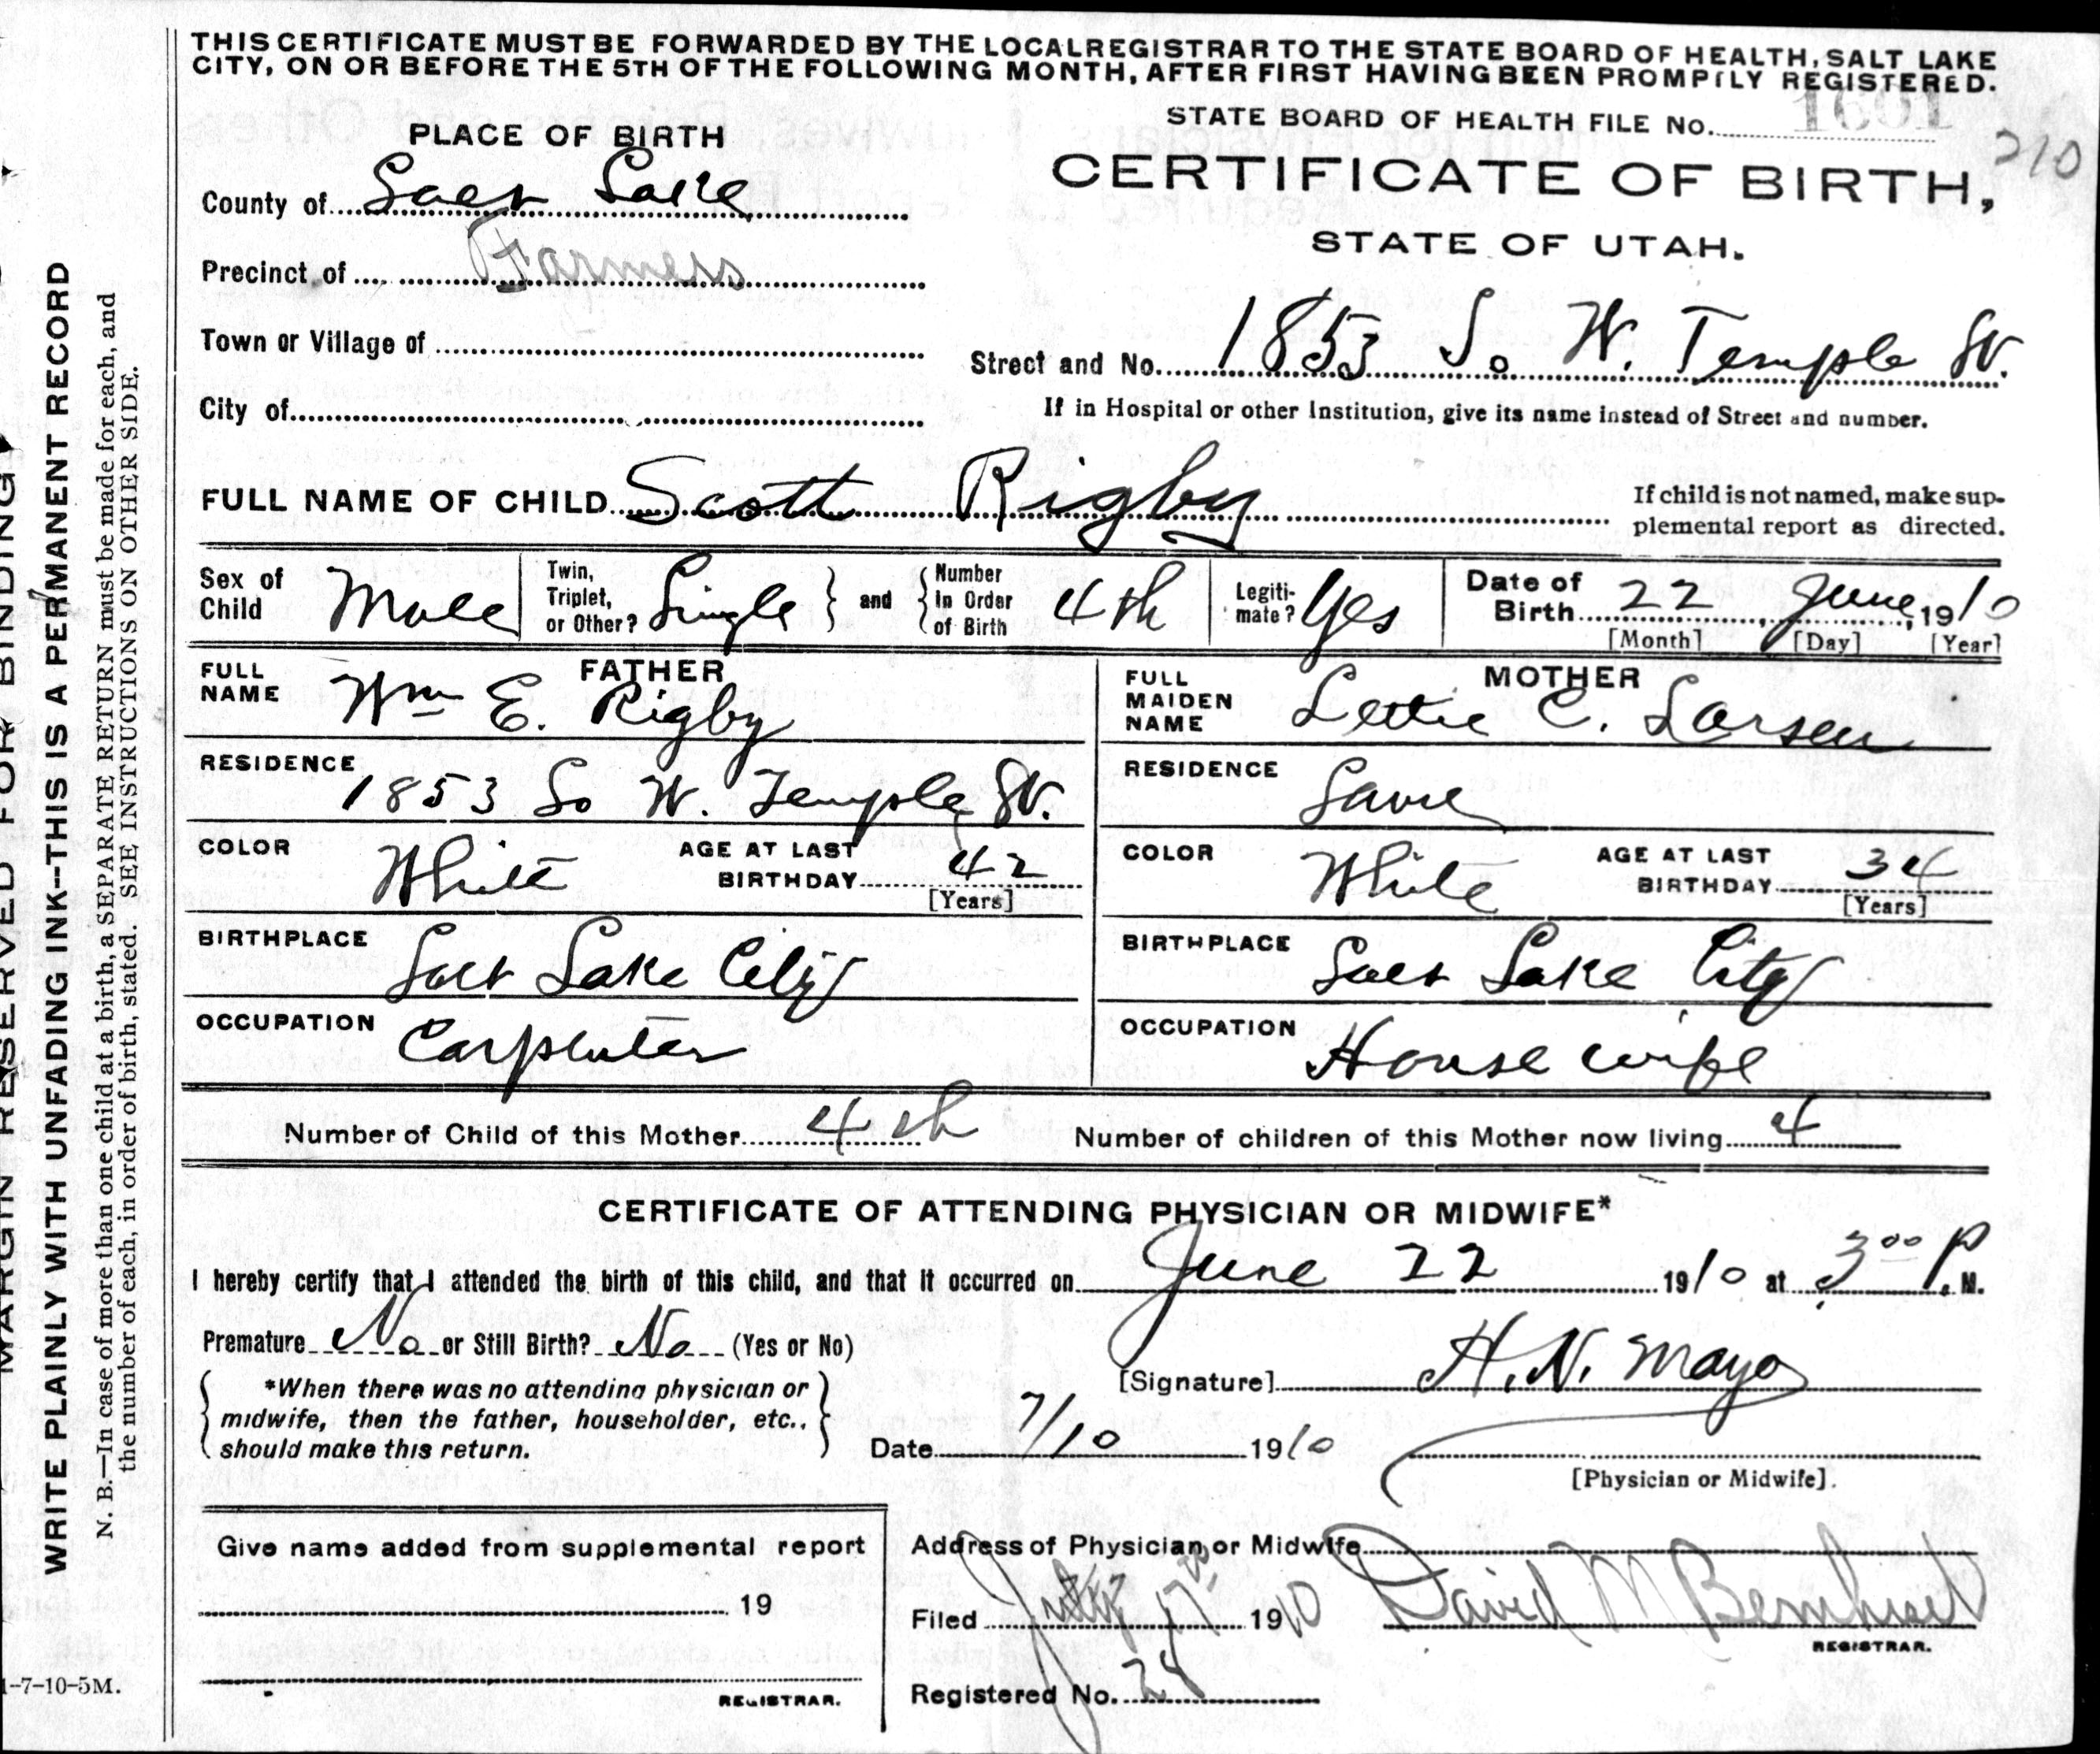 THIS CERTIFICATE MUST BE FORWARDED BY THE LOCAL REGISTRAR TO THE STATE BOARD OF HEALTH, SALT LAKE
CITY, ON OR BEFORE THE 5TH OF THE FOLLOWING MONTH, AFTER FIRST HAVING BEEN PROMPTLY REGISTERED.
STATE BOARD OF HEALTH FILE No. 1601
210
PLACE OF BIRTH
CERTIFICATE OF BIRTH,
STATE OF UTAH.
County of Salt Lake
Precinct of Farmers
Town or Village of
Street and No. 1853 So W. Temple St.
City of
If in Hospital or other Institution, give its name instead of Street and number.
FULL NAME OF CHILD Scott Rigby
If child is not named, make sup-
plemental report as directed.
Sex of Child Male
Twin, Triplet, or Other? Single
and
Number in Order of Birth 4th
Legiti-mate? Yes
Date of Birth 22 June, 1910
[Month] [Day] [Year]
FATHER
FULL NAME Wm E. Rigby
RESIDENCE 1853 So W. Temple St.
COLOR White
AGE AT LAST BIRTHDAY 42
[Years]
BIRTHPLACE Salt Lake City
OCCUPATION Carpenter
MOTHER
FULL MAIDEN NAME Lettie C. Larsen
RESIDENCE Same
COLOR White
AGE AT LAST BIRTHDAY 34
[Years]
BIRTHPLACE Salt Lake City
OCCUPATION House wife
Number of Child of this Mother 4th
Number of children of this Mother now living 4
CERTIFICATE OF ATTENDING PHYSICIAN OR MIDWIFE*
I hereby certify that I attended the birth of this child, and that it occurred on June 22 1910 at 3 00 P. M.
Premature No or Still Birth? No (Yes or No)
*When there was no attending physician or
midwife, then the father, householder, etc.,
should make this return.
[Signature] H. N. Mayo
Date 7/10 1910
[Physician or Midwife].
Give name added from supplemental report
19
REGISTRAR.
Address of Physician or Midwife
Filed July 17 1910 David M Bernhisel
REGISTRAR.
Registered No. 24
MARGIN RESERVED FOR BINDING
WRITE PLAINLY WITH UNFADING INK--THIS IS A PERMANENT RECORD
N. B.—In case of more than one child at a birth, a SEPARATE RETURN must be made for each, and
the number of each, in order of birth, stated. SEE INSTRUCTIONS ON OTHER SIDE.
1-7-10-5M.